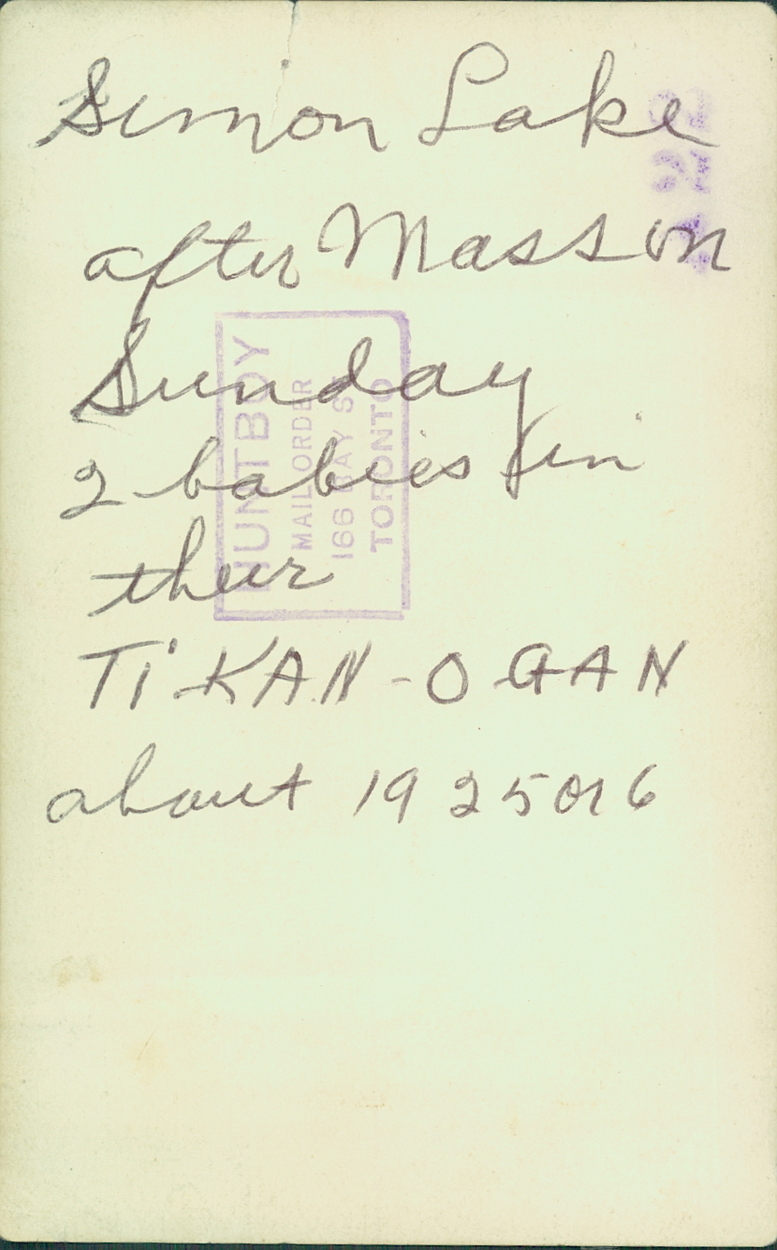 Simon Lake
after Mass on
Sunday
2 babies in
their
TIKAN-OGAN
about 1925 or 6
HUNTBOY
MAIL ORDER
166 BAY ST
TORONTO